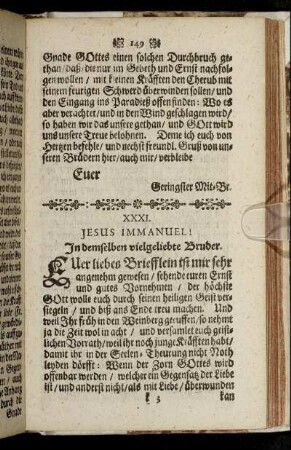 149
Gnade GOttes einen solchen Durchbruch ge-
than/ daß/ die nur im Gebeth und Ernst nachfol-
gen wollen/ mit keinen Kräfften den Cherub mit
seinem feurigen Schwerd überwinden sollen/ und
den Eingang ins Paradieß offen finden: Wo es
aber verachtet/ und in den Wind geschlagen wird/
so haben wir das unsere gethan/ und GOtt wird
uns unsere Treue belohnen. Deme ich euch von
Hertzen befehle/ und nechst freundl. Gruß von un-
seren Brüdern hier/ auch mir/ verbleibe
Euer
Geringster Mit-Br.
XXXI.
JESUS IMMANUEL!
In demselben vielgeliebte Bruder.
EUer liebes Briefflein ist mir sehr
angenehm gewesen/ sehende euren Ernst
und gutes Vornehmen/ der höchste
GOtt wolle euch durch seinen heiligen Geist ver-
siegeln/ und biß ans Ende treu machen. Und
weil Ihr früh in den Weinberg geruffen/ so nehmt
ja die Zeit wol in acht/ und versamlet euch geist-
lichen Vorrath/ weil ihr noch junge Kräfften habt/
damit ihr in der Seelen-Theurung nicht Noth
leyden dörfft: Wenn der Zorn GOttes wird
offenbar werden/ welcher ein Gegensatz der Liebe
ist/ und anderst nicht/ als mit Liebe/ überwunden
k 3 kan